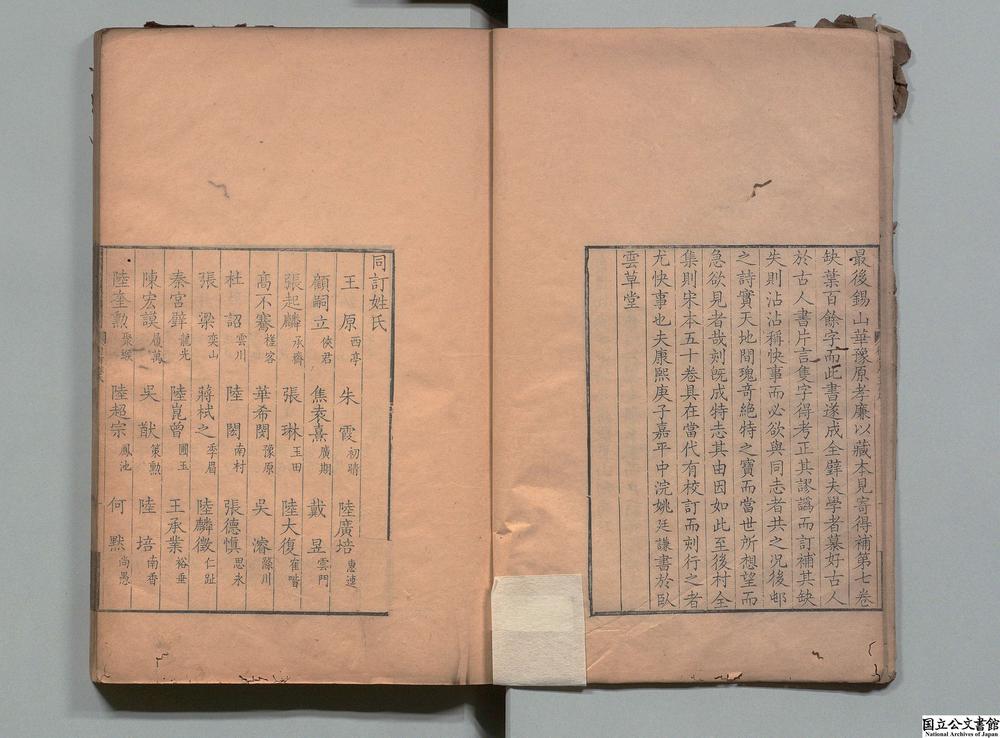 最後錫山華豫原孝廉以藏本見寄得補第七卷
缺葉百餘字而此書遂成全璧夫學者慕好古人
於古人書片言隻字得考正其謬譌而訂補其缺
失則沾沾稱快事而必欲與同志者共之況後邨
之詩實天地間瑰奇絕特之寶而當世所想望而
急欲見者哉刻既成特志其由因如此至後村全
集則宋本五十卷具在當代有校訂而刻行之者
尤快事也夫康熙庚子嘉平中浣姚廷謙書於臥
雲草堂
同訂姓氏
王原 西亭 朱霞 初晴 陸廣培 惠連
顧嗣立 俠君 焦袁熹 廣期 戴昱 雲門
張起麟 承齋 張琳 玉田 陸大復
高不騫 槎客 華希閔 豫原 吳濬
杜詔 雲川 陸閎 南村 張德愼 思永
張梁 奕山 蔣栻之 季眉 陸麟徵 仁趾
秦宮璧 龍光 陸崑曾 圃玉 王承業 裕垂
陳宏謨 吳猷 策勳 陸培 南香
陸奎勳 聚緱 陸超宗 鳳池 何黙 尚愚
国立公文書館
National Archives of Japan